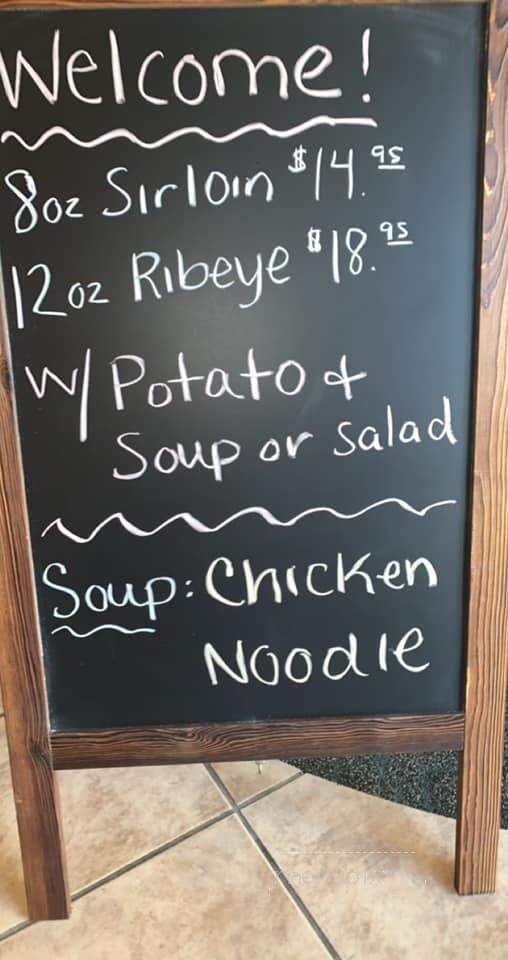 Welcome!
8oz Sirloin $14.95
12oz Ribeye $18.95
w/ Potato &
Soup or Salad
Soup: Chicken
Noodle